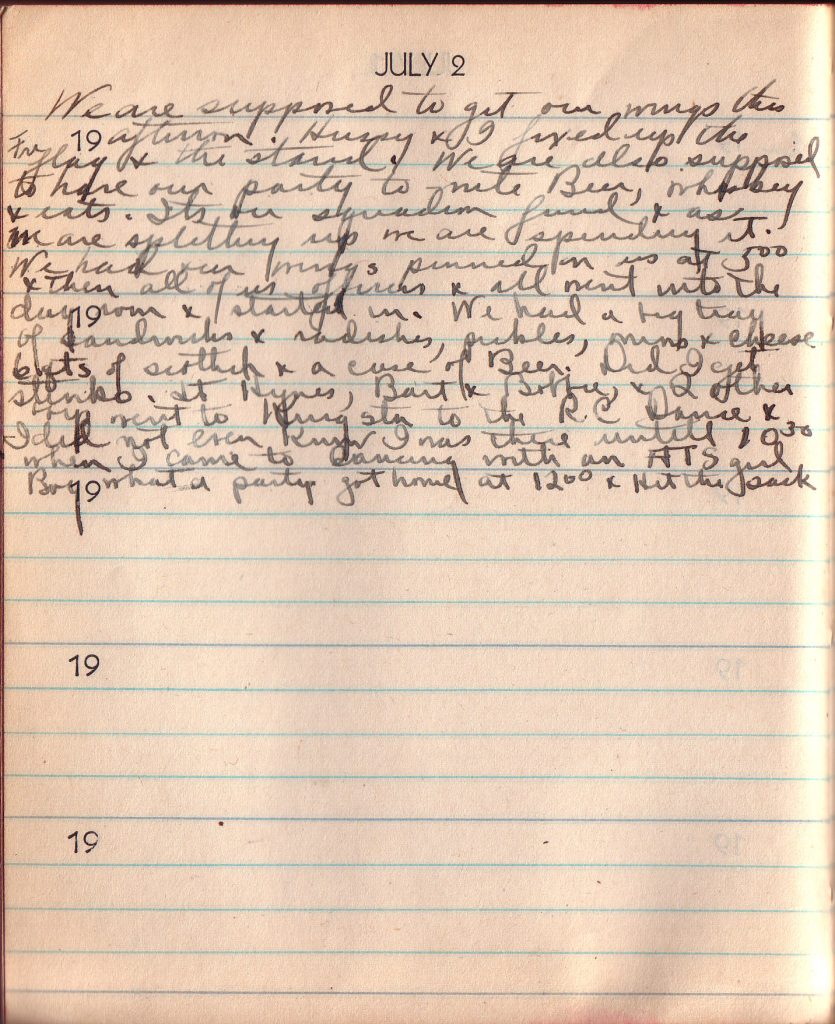 JULY 2
We are supposed to get our wings this
19 afternoon. Hussy & I fixed up the
Fri flag & the stand. We are also supposed
to have our party to-nite Beer, whiskey
& eats. Its our squadron fund & as
we are splitting up we are spending it.
We had our wings pinned on us at 500
& then all of us officers & all went into the
day room & started in. We had a big tray
19
of sandwichs & radishes, pickles, & cheese
6 qts of scotch & a case of Beer. Did I get
stinko. Lt Hynes, Bart & Bobbie, & 2 other
boys went to Kingston to the R.C Dance &
I did not even know I was there untill 1030
when I came to dancing with an ATS girl
Boy what a party. got home at 1200 & Hit the sack
19
19
19